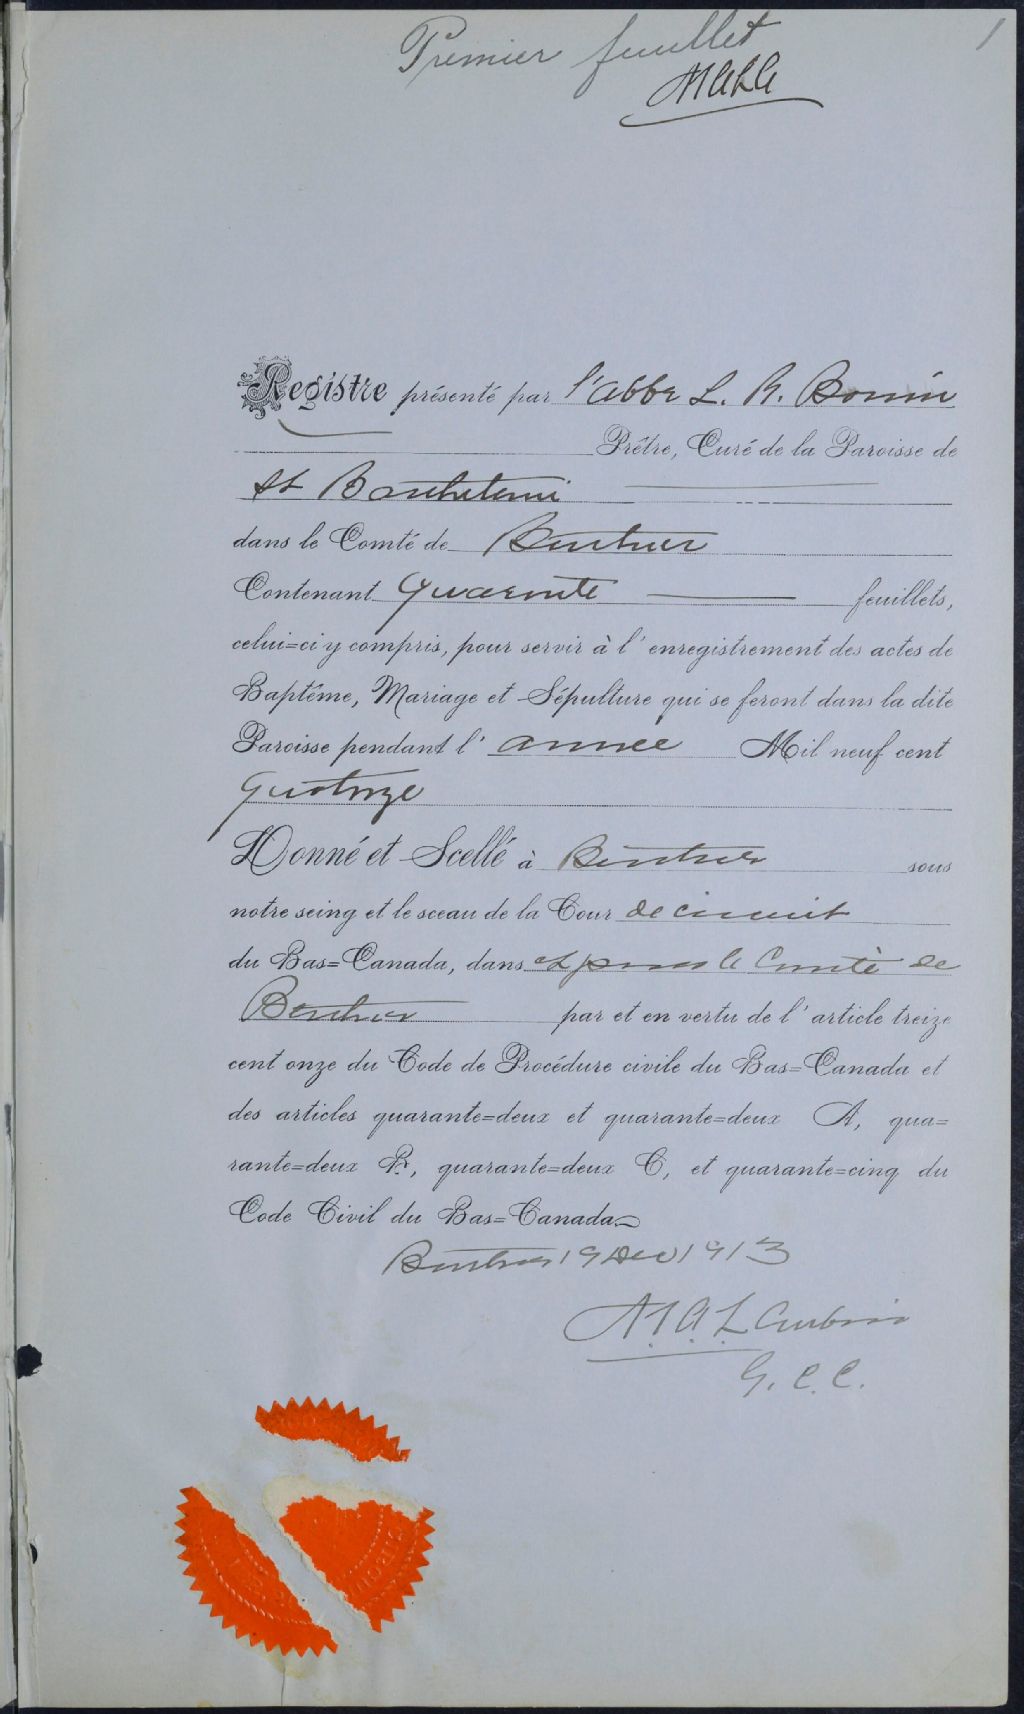 Premier feuillet
1
Registre présenté par l'abbé L. R. Bonin
Prêtre, Curé de la Paroisse de
St Barthelemi
dans le Comté de Berthier
Contenant Quarante feuillets,
celui=ci y compris, pour servir à l'enregistrement des actes de
Baptême, Mariage et Sépulture qui se feront dans la dite
Paroisse pendant l'année Mil neuf cent
Quatorze
Donné et Scellé à Berthier sous
notre seing et le sceau de la Cour de circuit
du Bas=Canada, dans et pour le Comté de
Berthier par et en vertu de l'article treize
cent onze du Code de Procédure civile du Bas=Canada et
des articles quarante=deux et quarante=deux A, qua=
rante=deux B, quarante=deux C, et quarante=cinq du
Code Civil du Bas=Canada
Berthier 19 Dec 1913
G. C. C.